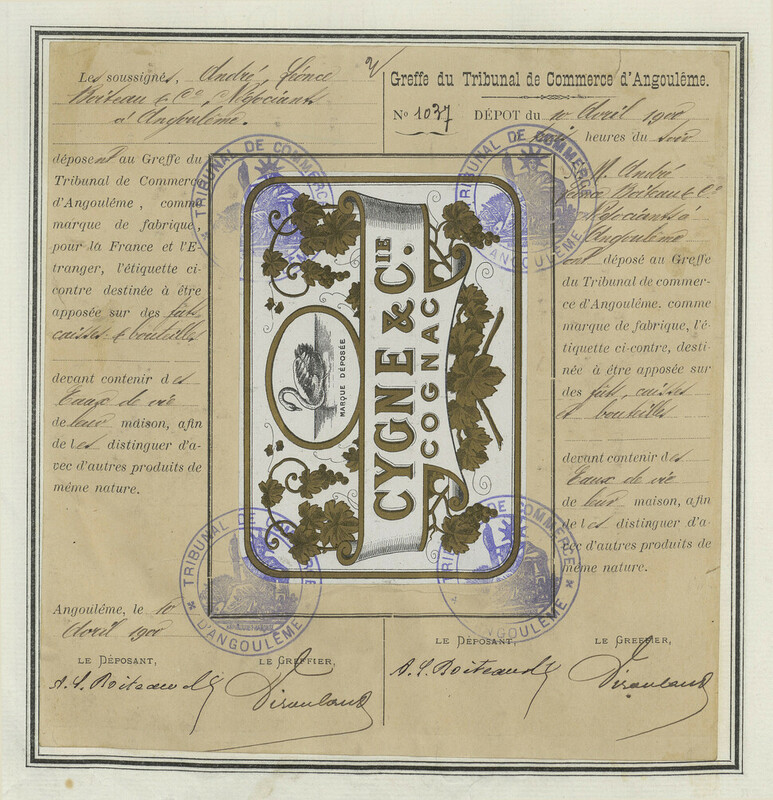 Les soussignés, André, Prince
Boiteau & Cie, Négociants
à Angoulême.
déposent au Greffe du
Tribunal de Commerce
d'Angoulême, comme
marque de fabrique,
pour la France et l'E-
tranger, l'étiquette ci-
contre destinée à être
apposée sur des fûts,
caisses & bouteilles
devant contenir des
Eaux de vie
de leur maison, afin
de les distinguer d'a-
vec d'autres produits de
même nature.
Angoulême, le 10
Avril 1900
LE DÉPOSANT, LE GREFFIER,
A. P. Boiteau & Cie
Greffe du Tribunal de Commerce d'Angoulême.
No 1037 DÉPOT du 10 Avril 1900
heures du soir
M. André
Prince Boiteau & Cie
Négociants à
Angoulême
ont déposé au Greffe
du Tribunal de commer-
ce d'Angoulême. comme
marque de fabrique, l'é-
tiquette ci-contre, desti-
née à être apposée sur
des fûts, caisses
et bouteilles
devant contenir des
Eaux de vie
de leur maison, afin
de les distinguer d'a-
vec d'autres produits de
même nature.
LE DÉPOSANT, LE GREFFIER,
A. P. Boiteau & Cie
CYGNE & CIE.
COGNAC
MARQUE DÉPOSÉE
TRIBUNAL DE COMMERCE
D'ANGOULÊME
TRIBUNAL DE COMMERCE
D'ANGOULÊME
TRIBUNAL DE
D'ANGOULÊME
TRIBUNAL DE COMMERCE
D'ANGOULÊME